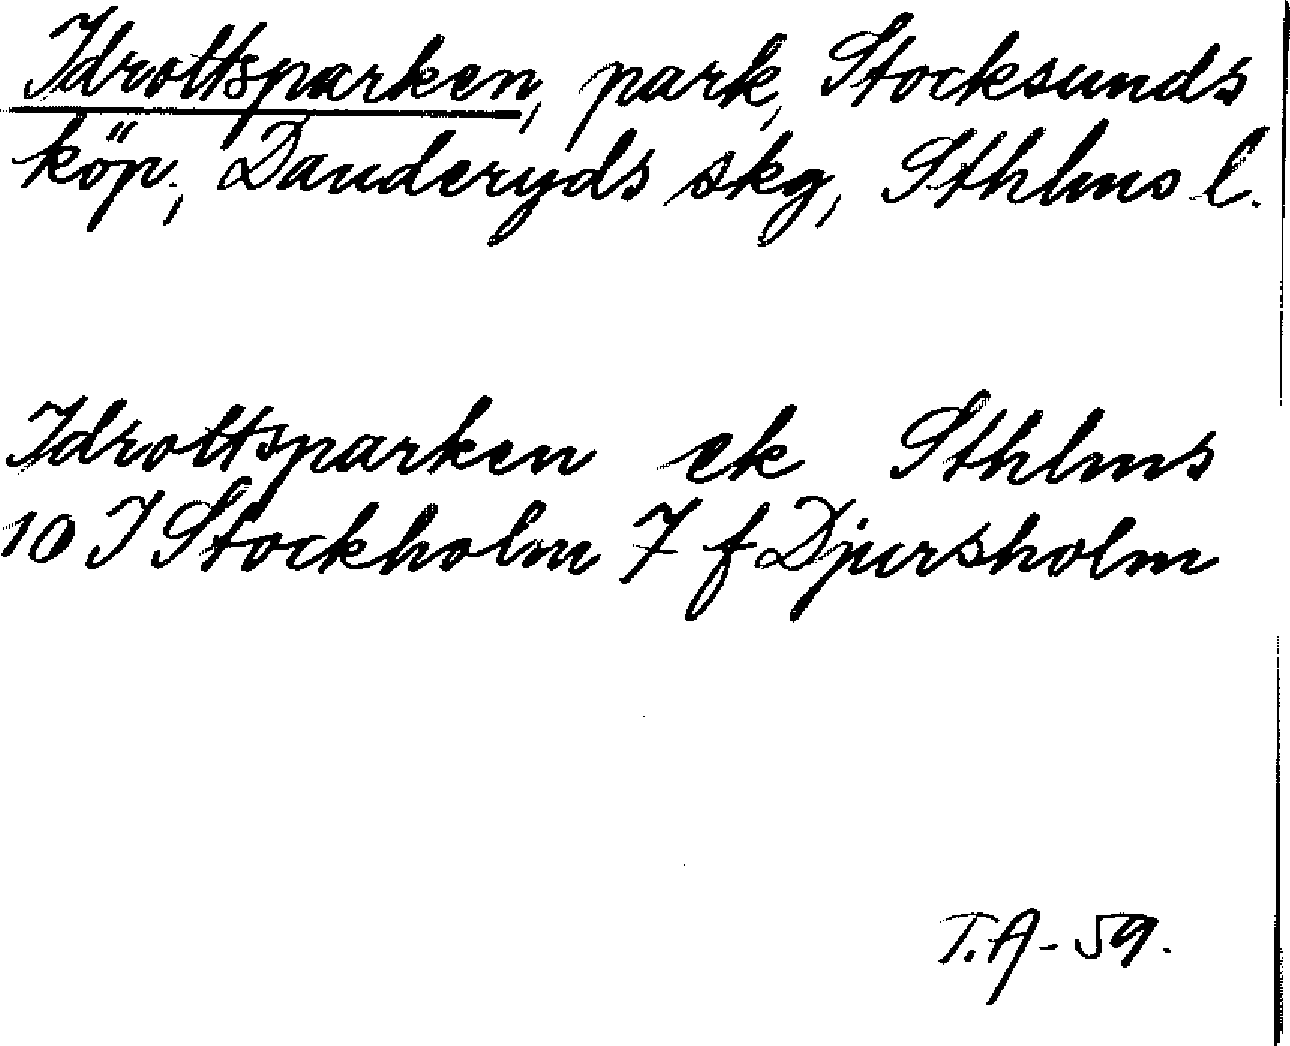 Idrottsparken, park, Stocksunds
köp., Danderyds skg, Sthlms l.
Idrottsparken ek Sthlms
10 I Stockholm 7 f Djursholm
T.A-59.